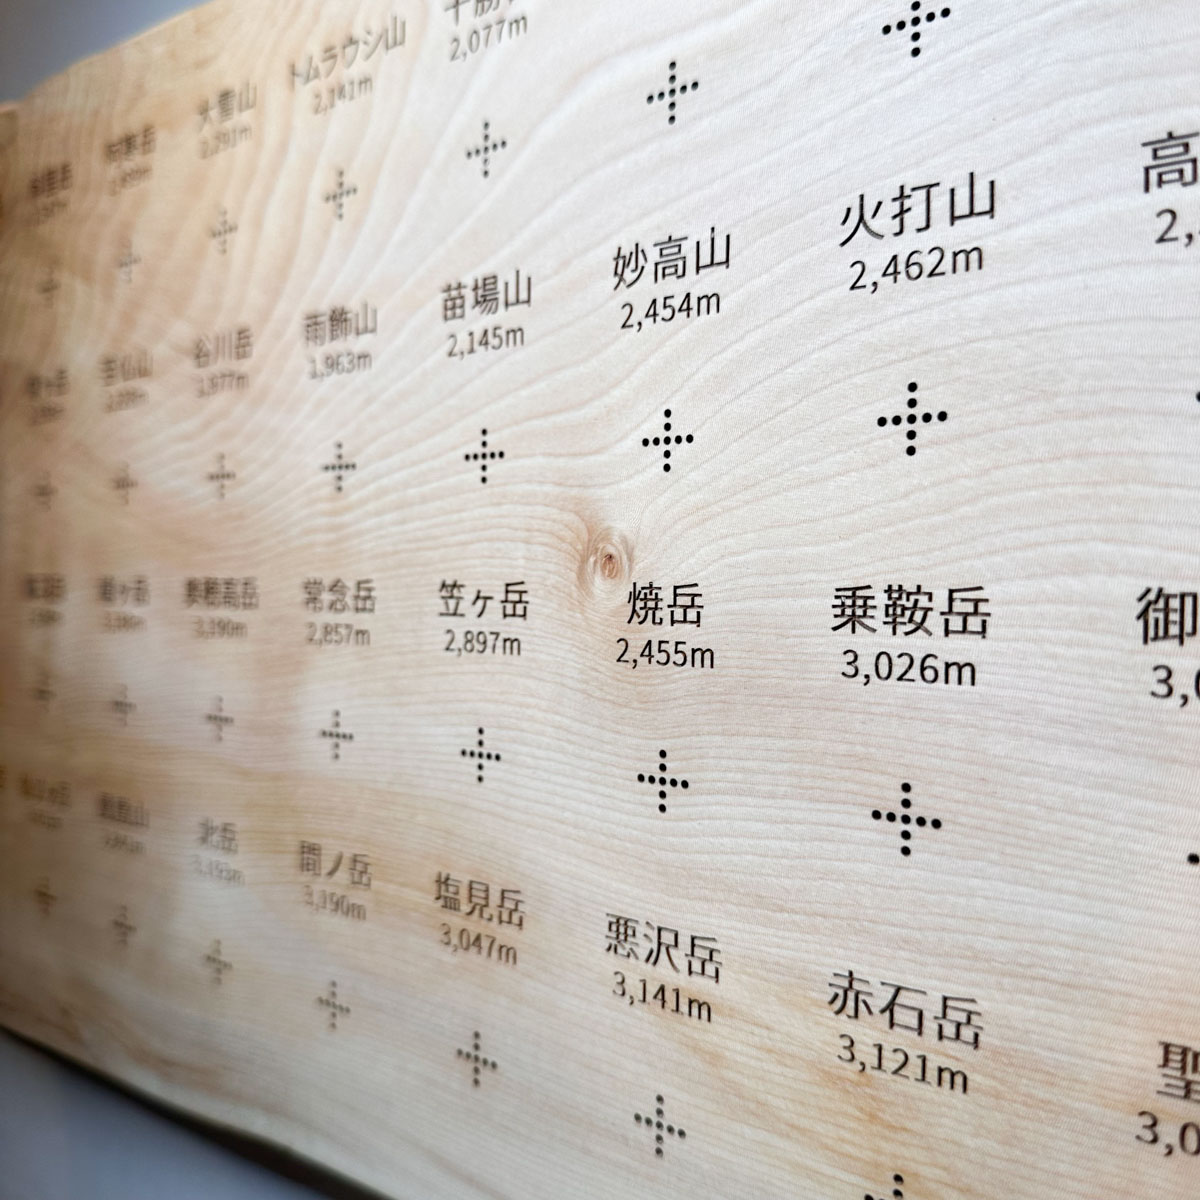 トムラウシ山
2,141m
2,077m
大雪山
2,291m
高
2,
火打山
2,462m
妙高山
2,454m
苗場山
2,145m
雨飾山
1,963m
谷川岳
1,977m
常念岳
2,857m
笠ヶ岳
2,897m
焼岳
2,455m
乗鞍岳
3,026m
御
3,0
奥穂高岳
3,190m
北岳
3,193m
間ノ岳
3,190m
塩見岳
3,047m
悪沢岳
3,141m
赤石岳
3,121m
聖
3,0